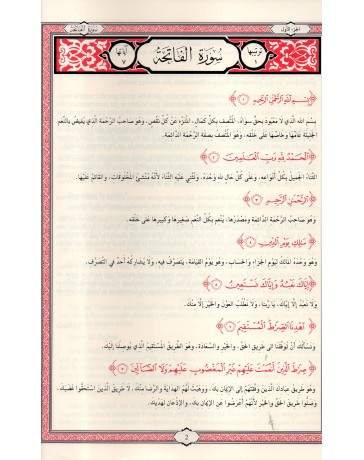 الجزء الأول
سورة الفاتحة
ترتيبها ١
سورة الفاتحة
آياتها ٧
﴿بسم الله الرحمن الرحيم ١﴾
بسم الله الذي لا معبود بحق سواه، المتصف بكل كمال، المنزه عن كل نقص، وهو صاحب الرحمة الذي يفيض بالنعم
الجليلة عامها وخاصها على خلقه، وهو المتصف بصفة الرحمة الدائمة.
﴿الحمد لله رب العالمين ٢﴾
الثناء الجميل بكل أنواعه، وعلى كل حال لله وحده، ونثني عليه الثناء، لأنه منشئ المخلوقات، والقائم عليها.
﴿الرحمن الرحيم ٣﴾
وهو صاحب الرحمة الدائمة ومصدرها، ينعم بكل النعم صغيرها وكبيرها على خلقه.
﴿مالك يوم الدين ٤﴾
وهو وحده المالك ليوم الجزاء والحساب، وهو يوم القيامة، يتصرف فيه، ولا يشاركه أحد في التصرف.
﴿إياك نعبد وإياك نستعين ٥﴾
ولا نعبد إلا إياك، يا ربنا، ولا نطلب العون والخير إلا منك.
﴿اهدنا الصراط المستقيم ٦﴾
ونسألك أن توفقنا إلى طريق الحق، والخير، والسعادة، وهو الطريق المستقيم الذي يوصلنا إليك.
﴿صراط الذين أنعمت عليهم غير المغضوب عليهم ولا الضالين ٧﴾
وهو طريق عبادك الذين وفقتهم إلى الإيمان بك، ووهبت لهم الهداية والرضا منك، لا طريق الذين استحقوا غضبك،
وضلوا طريق الحق والخير لأنهم أعرضوا عن الإيمان بك، والإذعان لهديك.
2